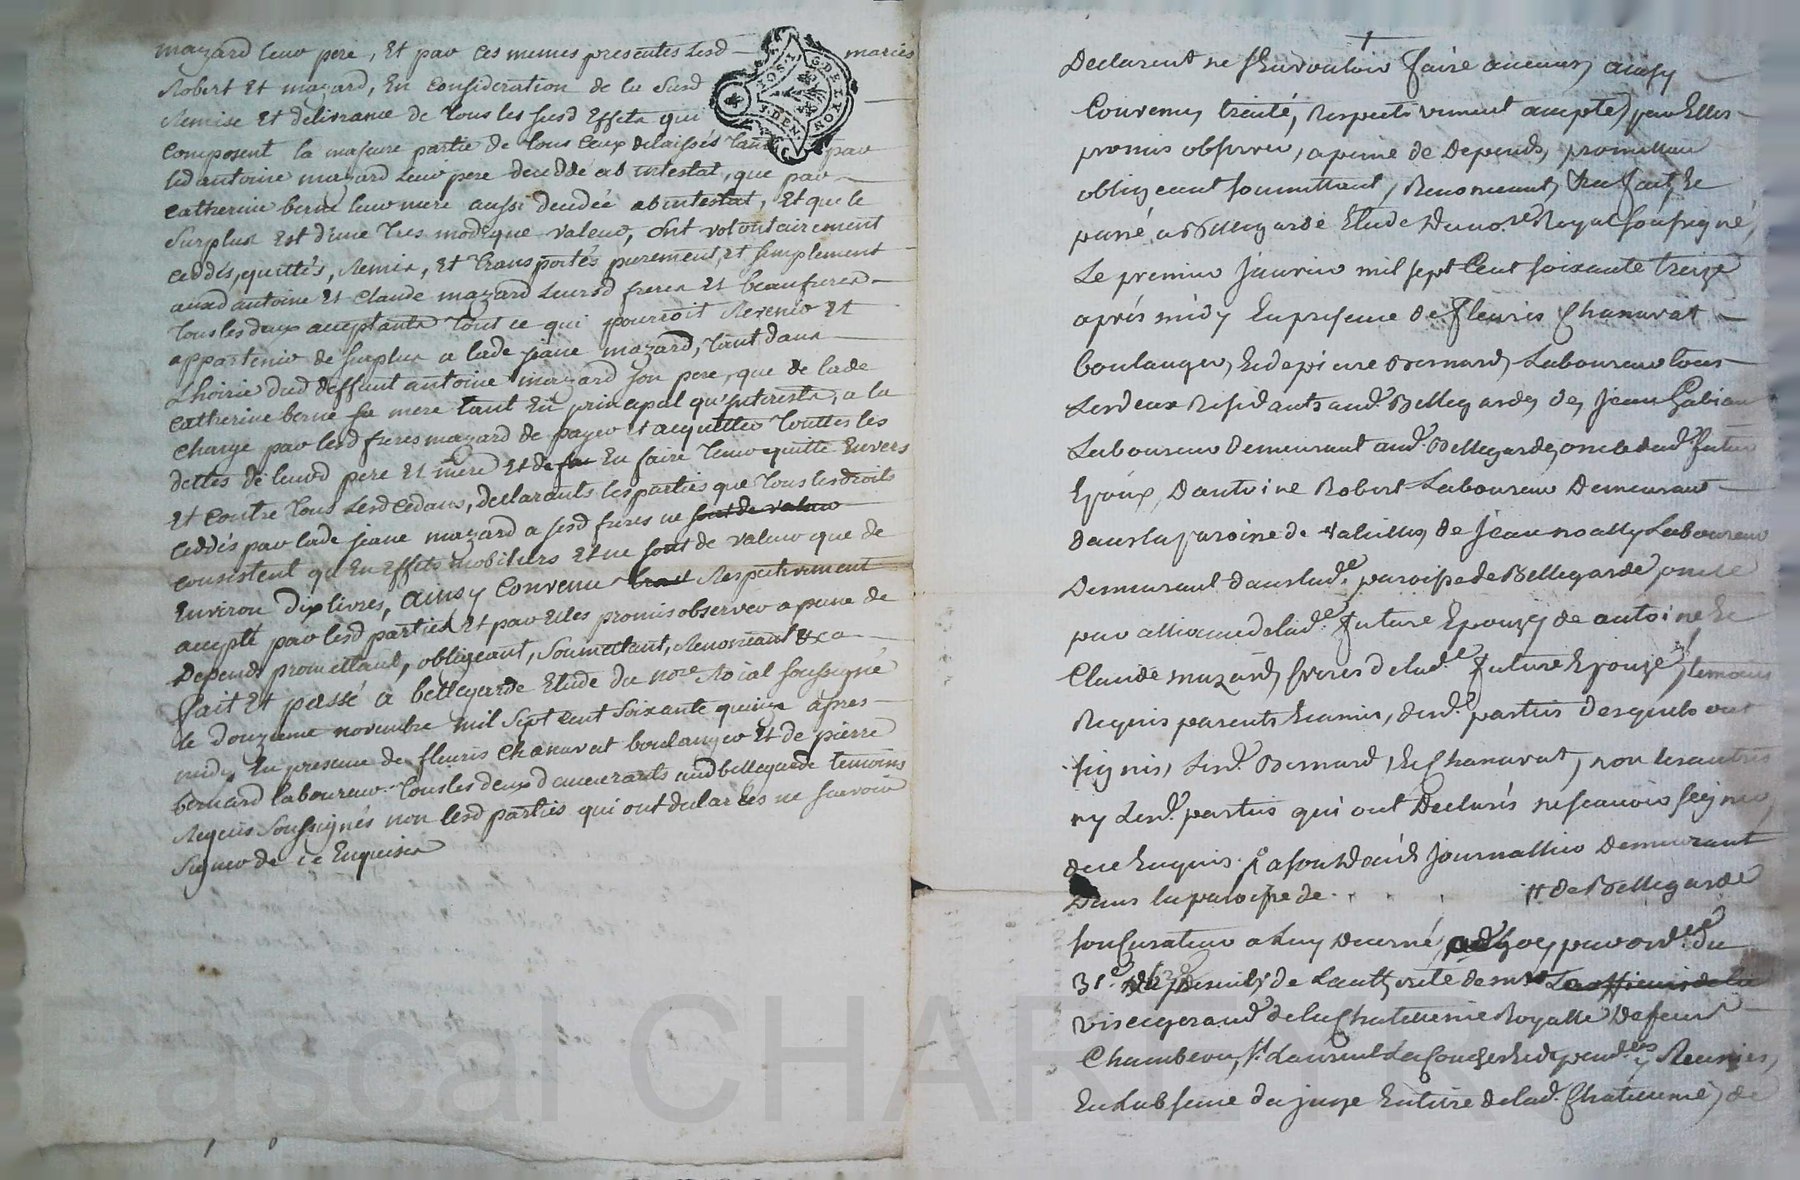 mazard leur pere, Et par ces memes presentes Lesd mariés
Robert Et mazard, En consideration de la susd
Remise Et delivrance de tous les susd Effets qui
composent la majeure partie de tous ceux delaissés tant par
led antoine mazard Leur pere decedde ab intestat, que par
catherine berne leur mere aussi decedée abintestat, Et que le
surplus Est d'une tres modique valeur, ont volontairement
ceddés, quittés, Remis, Et transportés purement, et simplement
auxd antoine Et claude mazard Leursd freres Et beaufreres
tous les deux acceptants tout ce qui pourroit Revenir Et
appartenir de surplus a lade jeane mazard, tant dans
Lhoirie dud deffunt antoine mazard son pere, que de lade
catherine berne sa mere tant En principal qu'interests, a la
charge par lesd freres mazard de payer Et acquitter touttes les
dettes de leursd pere Et mere Et de En faire tenir quitte Envers
Et contre tous Lesd cedans, declarants les parties que tous les droits
ceddés par lade jeane mazard a sesd freres ne sont de valeur
consistent qu'En Effets mobiliers Et ne sont de valeur que de
Environ dix livres, ainsy convenu Respectivement
accepté par lesd parties Et par Elles promis observer a peine de
Depends promettant, obligeant, soumettant, Renonceant &ca
fait Et passé a bellegarde Etude du nore Roial soussigné
le douzieme novembre mil sept cent soixante quinze apres
midy En presence de fleuris chanavat boulanger Et de pierre
bernard laboureur tous les deux demeurants aud bellegarde temoins
Requis soussignés non lesd parties qui ont declarées ne scavoir
signer de ce Enquises
Declarent ne scavoir faire aucuns, ainsy
Convenu, traité, Respectivement accepté, par Elles
promis observer, a peine de Depends, promettant
obligeant soumettant, Renonceant, &ca fait Et
passé a Bellegarde Etude Du no.re Royal soussigné,
Le premier Janvier mil sept Cent soixante treize
après midy En presence de fleuris Chanavat
boulanger, Et de pierre Bernard, Laboureur tous
Les deux Residants aud. Bellegarde, de Jean Gabian
Laboureur demeurant aud. Bellegarde, oncle dud. futur
Epoux, D'antoine Robert Laboureur Demeurant
dans la paroisse de , de Jean noally Laboureur
Demeurant dans lad.e paroisse de Bellegarde, oncle
par alliance de lad.e future Epouze, de antoine Et
Claude mazard, freres de lad.e future Epouze, temoins
Requis parents Et amis, desd. parties desquels ont
signés, Lesd. Bernard, Et Chanavat, non les autres
ny Lesd. parties qui ont Declarés ne scavoir signer,
de ce Enquis. Journallier Demeurant
Dans la paroisse de . . . . # de Bellegarde
son Curateur a Luy decerné par ord.ce du
31.e de Lauthorité de
visegerand de la Chatelenie Royalle de feurs
Chambeon, St. Laurent La Conche Et dependces Reunies,
En Labsence du juge Enture de lad. Chatelenie, de